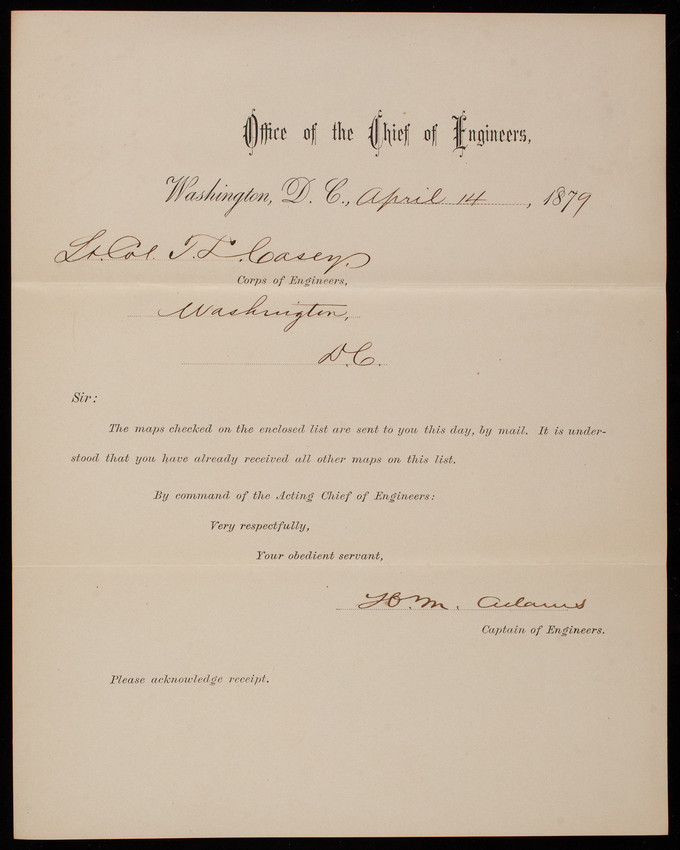 Office of the Chief of Engineers,
Washington, D. C., April 14, 1879
Lt. Col. T. L. Casey,
Corps of Engineers,
Washington,
D.C.
Sir:
The maps checked on the enclosed list are sent to you this day, by mail. It is under-
stood that you have already received all other maps on this list.
By command of the Acting Chief of Engineers:
Very respectfully,
Your obedient servant,
H. M. Adams
Captain of Engineers.
Please acknowledge receipt.